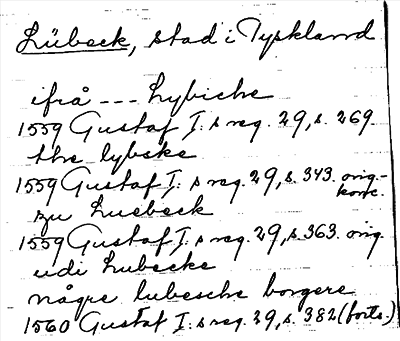 Lübeck, stad i Tyskland
ifrå --- Lybiche
1559 Gustaf I:s reg. 29, s. 269.
the lybske
1559 Gustaf I:s reg. 29, s. 343. orig.-
konc.
zu Luebeck
1559 Gustaf I:s reg. 29, s. 363. orig.
udi Lubecke
någre lubesche borgere
1560 Gustaf I:s reg. 29, s. 382 (forts.)